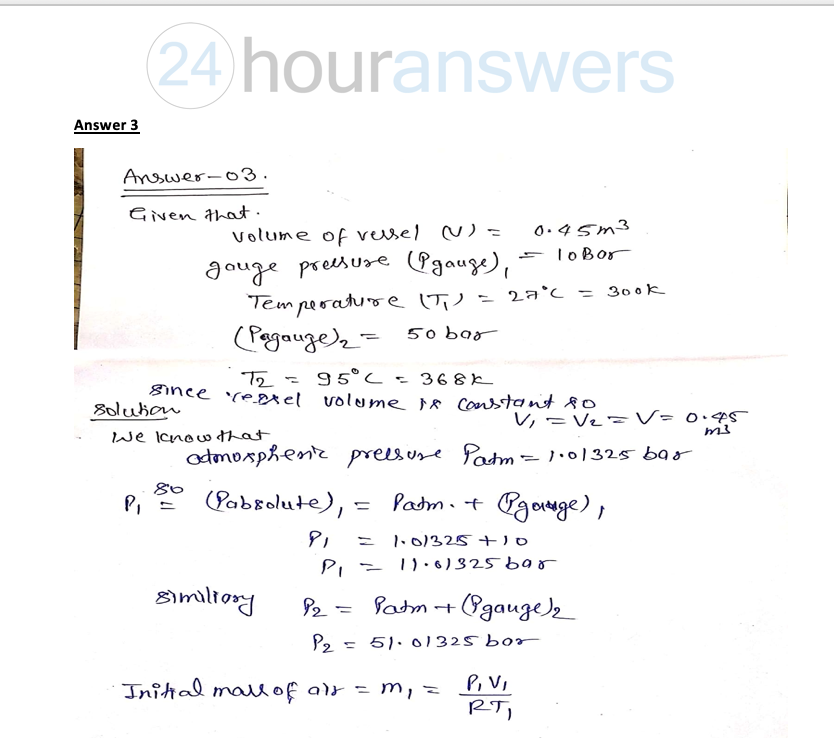 24 houranswers
Answer 3
Answer-03.
Given that.
volume of vessel (V) = 0.45m³
gauge pressure (Pgauge)₁ = 10Bar
Temperature (T₁) = 27°C = 300K
(Pagauge)₂ = 50 bar
T₂ = 95°C = 368K
since vessel volume is constant so
Solution V₁ = V₂ = V = 0.45 m3
We know that
atmospheric pressure Patm = 1.01325 bar
so
P₁ = (Pabsolute)₁ = Patm. + (Pgauge)₁
P₁ = 1.01325 + 10
P₁ = 11.01325 bar
similiary P₂ = Patm + (Pgauge)₂
P₂ = 51.01325 bar
Initial mass of air = m₁ = P₁V₁
RT₁